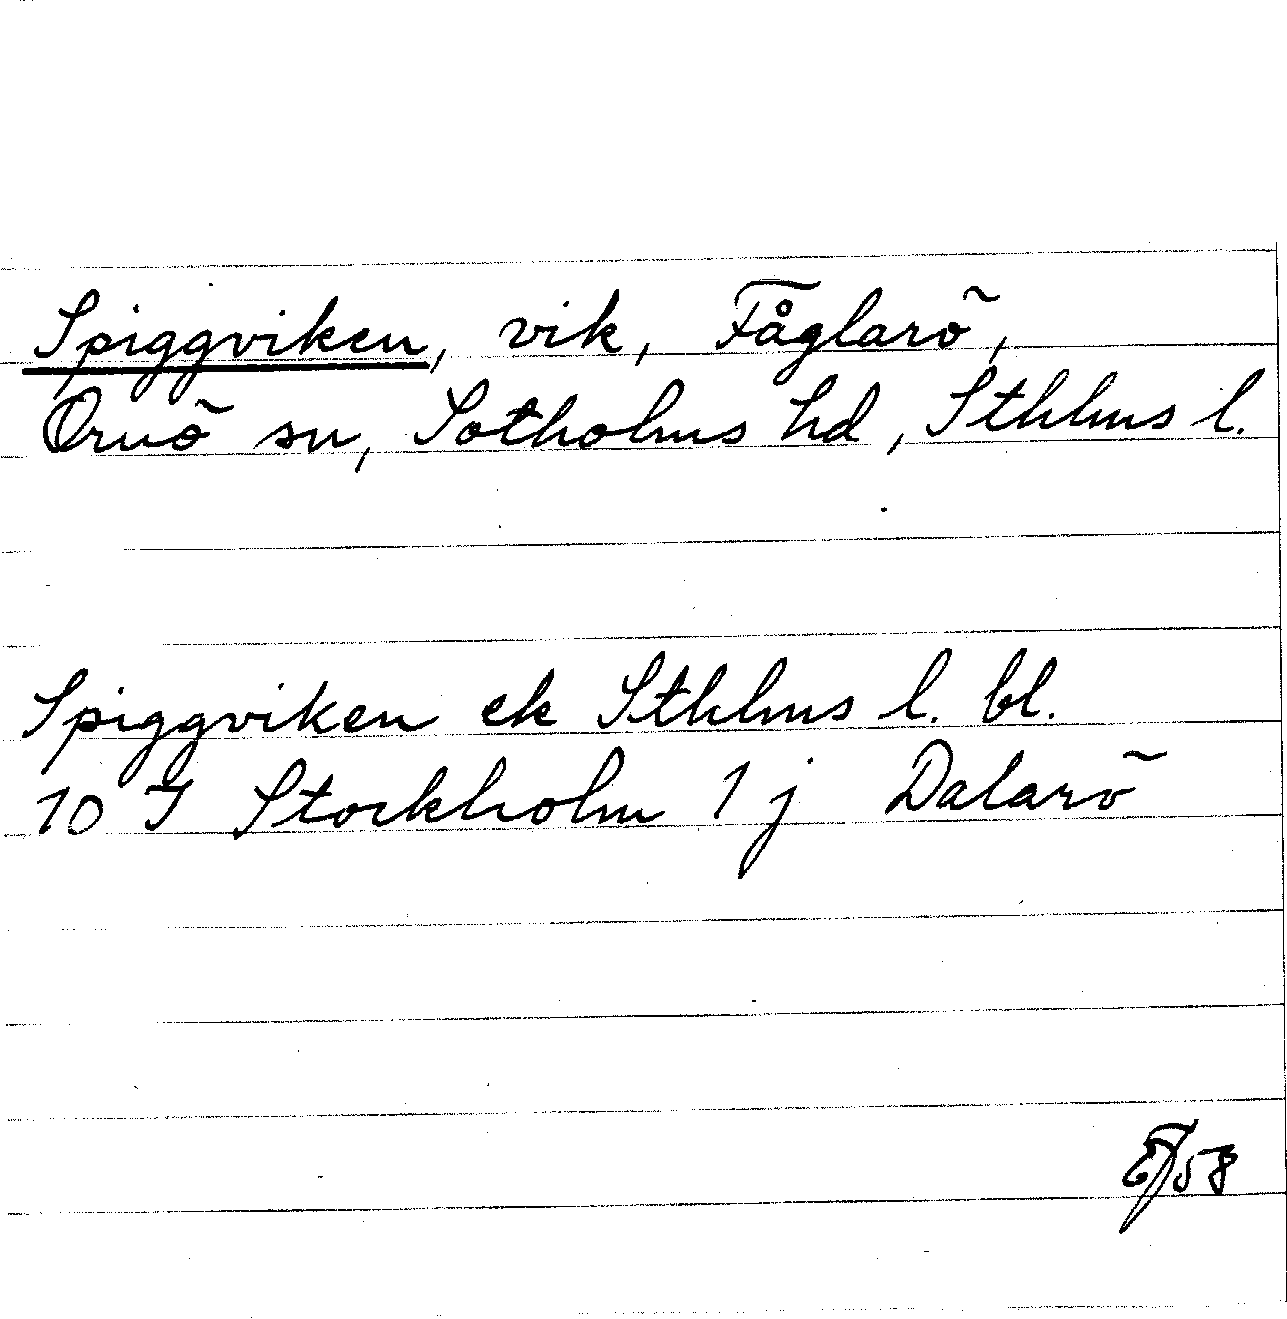 Spiggviken, vik, Fåglarö,
Ornö sn, Sotholms hd, Sthlms l.
Spiggviken ek Sthlms l. bl.
10 I Stockholm 1 j Dalarö
58